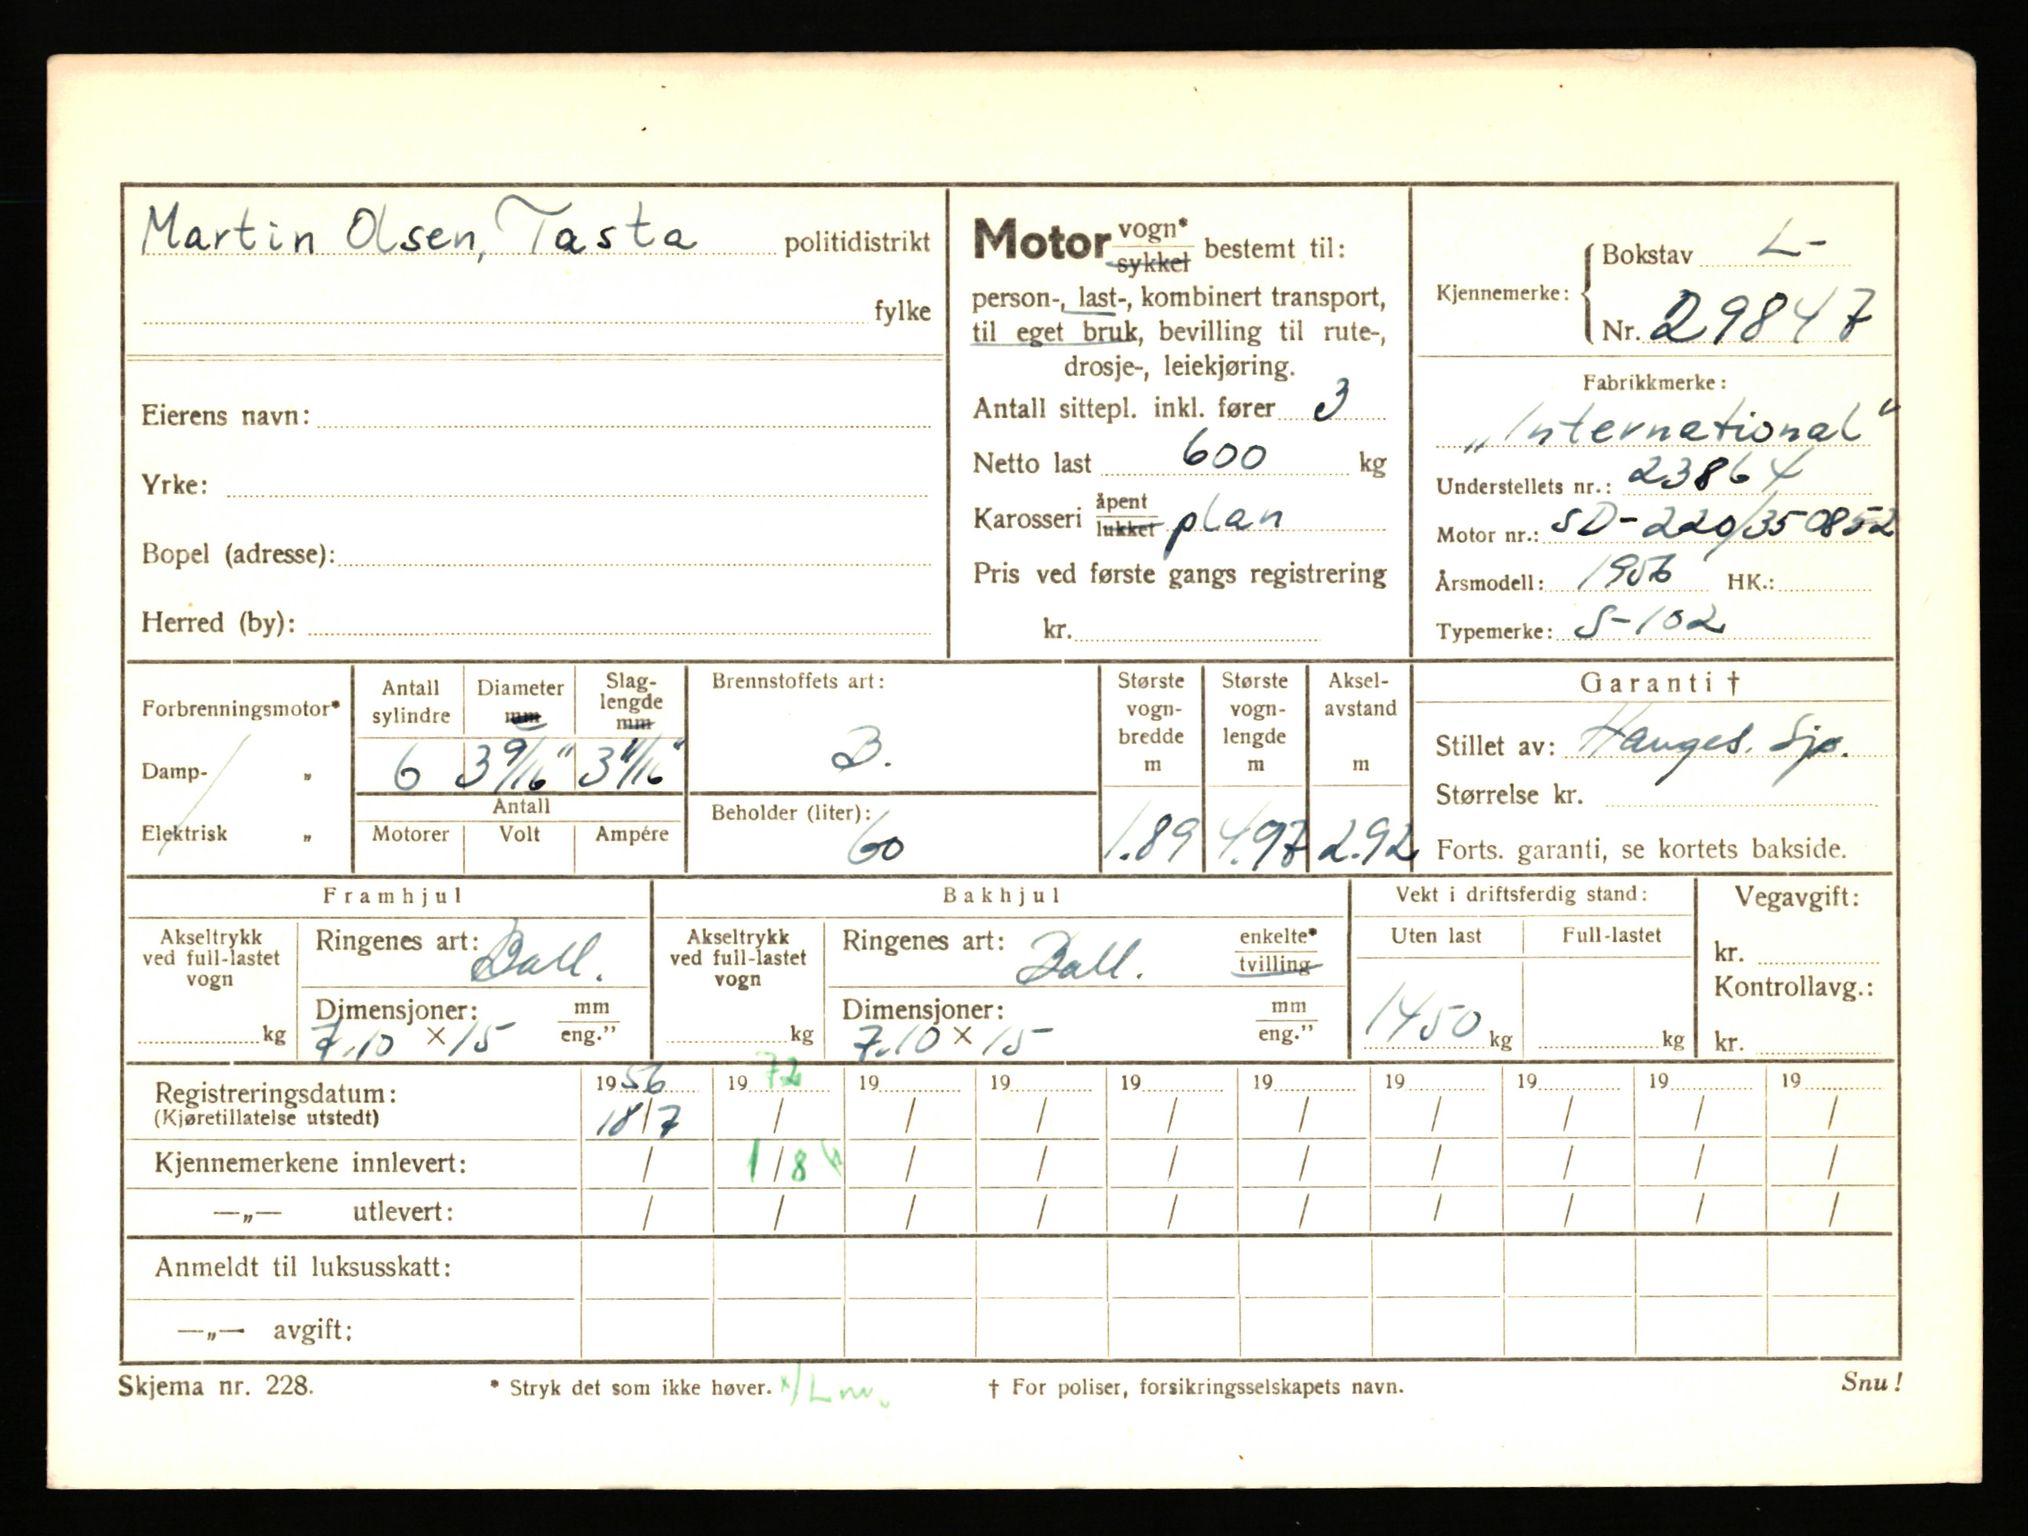 Martin Olsen, Tasta politidistrikt
fylke
Eierens navn:
Yrke:
Bopel (adresse):
Herred (by):
Motor vogn* sykkel bestemt til:
person-, last-, kombinert transport,
til eget bruk, bevilling til rute-,
drosje-, leiekjøring.
Antall sittepl. inkl. fører 3
Netto last 600 kg
Karosseri åpent lukket plan
Pris ved første gangs registrering
kr.
Kjennemerke: Bokstav L-
Nr. 29847
Fabrikkmerke:
„International"
Understellets nr.: 23864
Motor nr.: SD-220/350852
Årsmodell: 1956 HK.:
Typemerke: S-102
Forbrenningsmotor*
Damp- „
Elektrisk „
Antall sylindre 6
Diameter mm 3 9/16"
Slaglengde mm 3 11/16"
Antall
Motorer Volt Ampére
Brennstoffets art:
B.
Beholder (liter):
60
Største vognbredde m 1.89
Største vognlengde m 4.97
Akselavstand m 2.92
Garanti †
Stillet av: Hauges. Sjø.
Størrelse kr.
Forts. garanti, se kortets bakside.
Framhjul
Akseltrykk ved full-lastet vogn kg
Ringenes art: Ball.
Dimensjoner: mm eng."
7.10 × 15
Bakhjul
Akseltrykk ved full-lastet vogn kg
Ringenes art: Ball. enkelte* tvilling
Dimensjoner: mm eng."
7.10 × 15
Vekt i driftsferdig stand:
Uten last Full-lastet
1450 kg kg
Vegavgift:
kr.
Kontrollavg.:
kr.
Registreringsdatum: 1956 1972 19 19 19 19 19 19 19 19
(Kjøretillatelse utstedt) 18/7 / / / / / / / / /
Kjennemerkene innlevert: / 1/8 / / / / / / / /
—„— utlevert: / / / / / / / / / /
Anmeldt til luksusskatt:
—„— avgift:
Skjema nr. 228. * Stryk det som ikke høver. † For poliser, forsikringsselskapets navn. Snu!